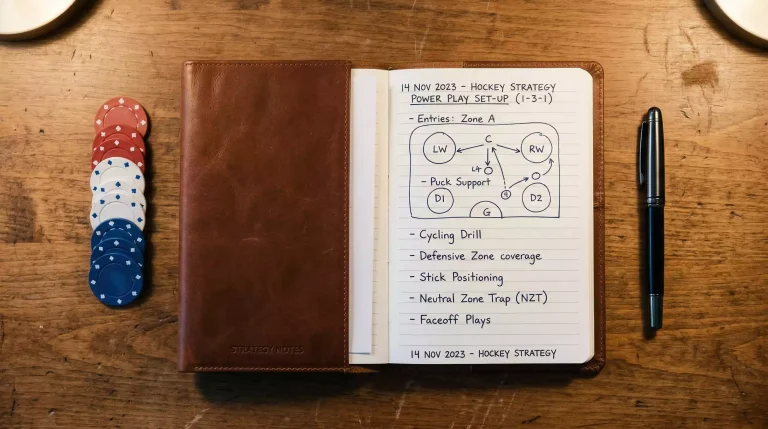 14 NOV 2023 - HOCKEY STRATEGY
POWER PLAY SET-UP (1-3-1)
- Entries: Zone A
LW
C
RW
- Puck Support
D1
G
D2
- Cycling Drill
- Defensive Zone coverage
- Stick Positioning
- Neutral Zone Trap (NZT)
- Faceoff Plays
14 NOV 2023 - HOCKEY STRATEGY
STRATEGY NOTES